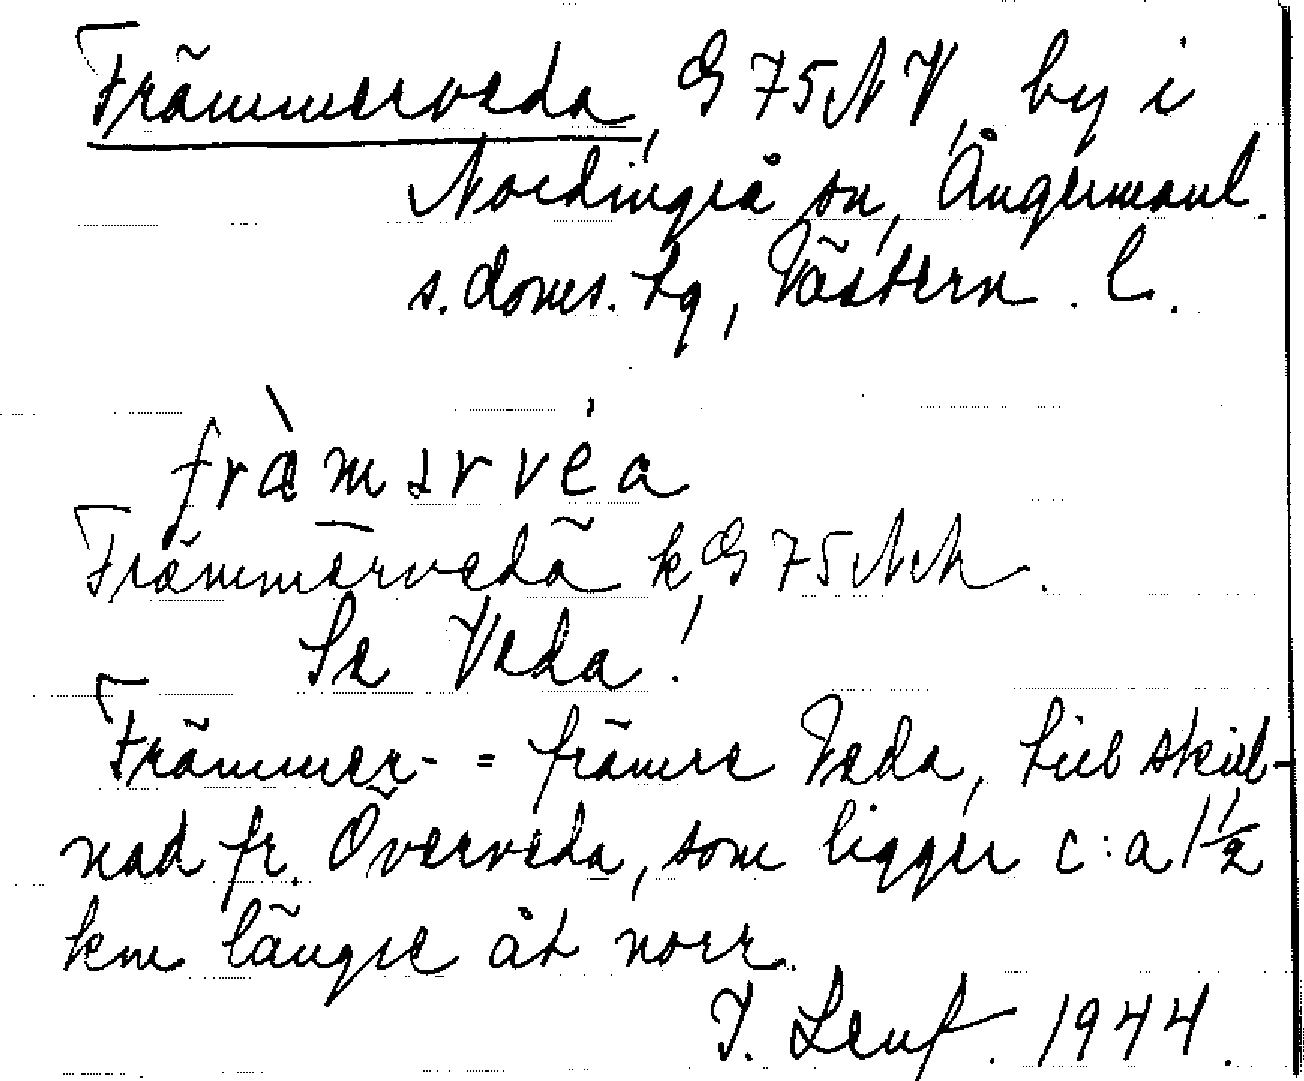 Främmerveda, G 75 NV, by i
Nordingrå sn, Ångermanl.
s. doms. tg, Västern. l.
fràmərvéa
Främmerveda k, G 75 NV.
Se Veda!
Främmer- = främre Veda, till skill-
nad fr. Överveda, som ligger c:a 1 1/2
km längre åt norr.
1944.